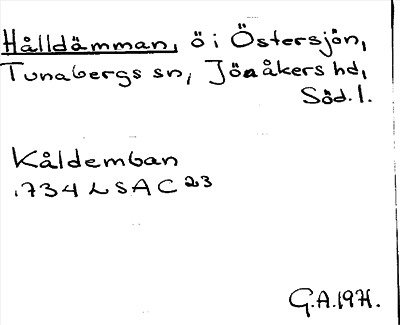 Hålldämman, ö i Östersjön,
Tunabergs sn, Jönåkers hd,
Söd. l.
Kåldemban
1734 LSA C 23
G.A. 1971.